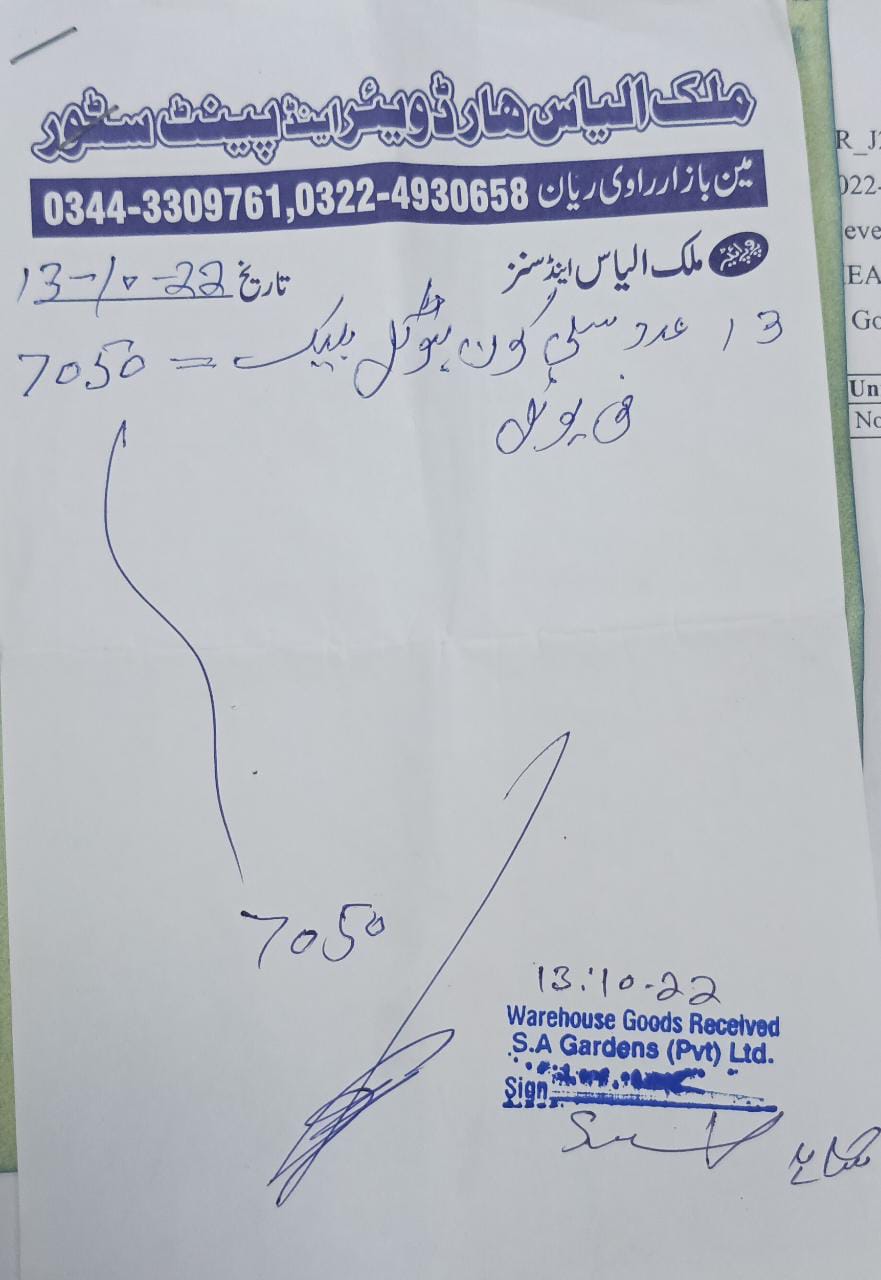 ملک الیاس ھارڈویئر اینڈ پینٹ سٹور
مین بازار راوی ریان 0344-3309761,0322-4930658
پروپرائیٹر ملک الیاس اینڈ سنز
تاریخ 13-10-22
13 عدد سلی کون بوتل بلیک = 7050
فی بوتل
7050
13-10-22
Warehouse Goods Received
S.A Gardens (Pvt) Ltd.
Sign
R_J2
022-
eve
EA
Go
Un
No